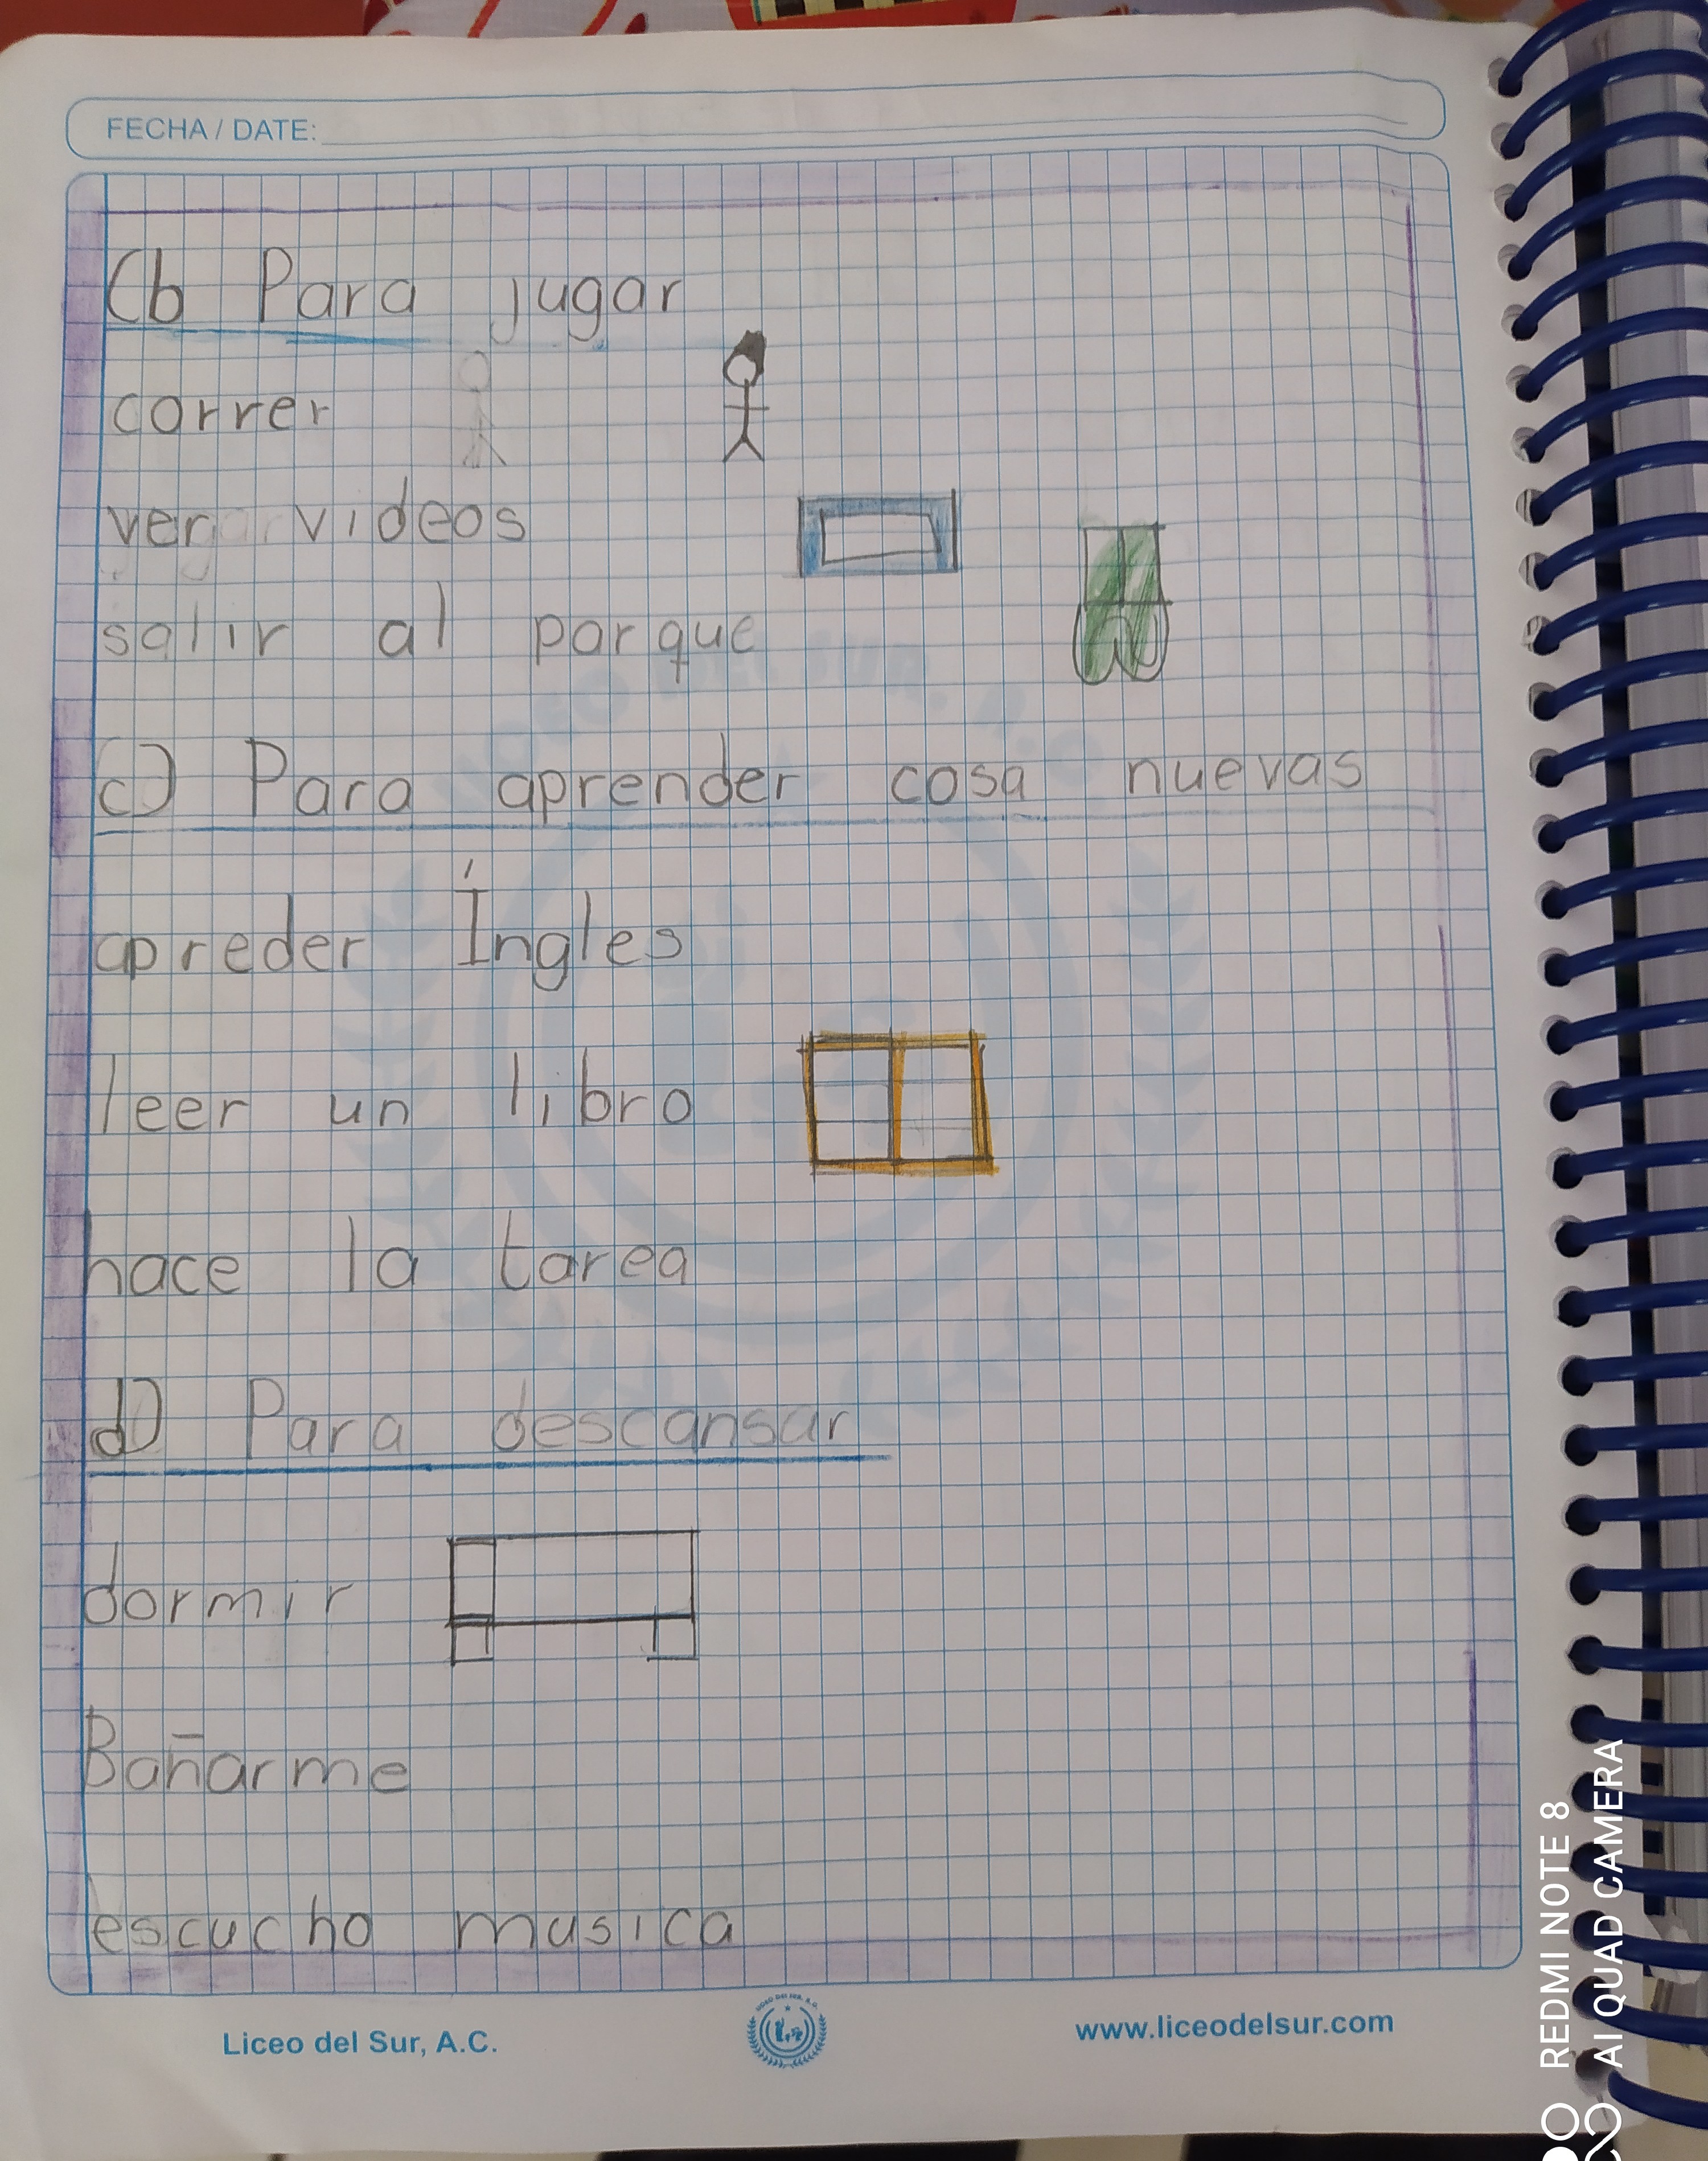 FECHA / DATE:
(b Para jugar
correr
ver videos
salir al parque
c) Para aprender cosa nuevas
apreder Íngles
leer un libro
hace la tarea
d) Para descansar
dormir
Bañarme
escucho musica
Liceo del Sur, A.C.
www.liceodelsur.com
REDMI NOTE 8
AI QUAD CAMERA